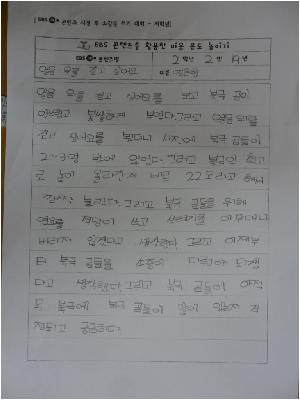 EBS 콘텐츠 시청 후 소감문 쓰기 대회 - 저학년
EBS 콘텐츠를 활용한 마음 온도 높이기
2학년 2반 19번
얼음 위를 걷고 싶어요
이름
얼음 위를 걷고 싶어요를 보고 북극 곰이
불쌍하게 보였다. 그리고 얼음 위를
걷고 싶어요를 봤더니 사진에 북극 곰들이
2~3명 밖에 없었다. 그리고 북극의 최고
로 높이 올라간 게 바로 22도라고 해서
깜짝 놀랐다. 그리고 북극 곰들을 위해
연료를 적당히 쓰고 쓰레기를 아무데나
버리지 않겠다고 생각했다. 그리고 이제부
터 북극 곰들을 소중히
다고 생각했다. 그리고 북극 곰들이 아직
도 북극에 북극 곰들이 많이 있는지 걱
정되고 궁금하다.